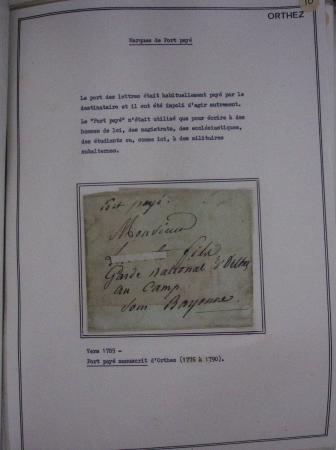 10
ORTHEZ
Marques de Port payé
Le port des lettres était habituellement payé par le
destinataire et il eut été impoli d'agir autrement.
Le "Port payé" n'était utilisé que pour écrire à des
hommes de loi, des magistrats, des ecclésiastiques,
des étudiants ou, comme ici, à des militaires
subalternes.
Port payé.
Monsieur
fils
Garde national d'Orthez
au Camp
Sous Bayonne.
Vers 1785 -
Port payé manuscrit d'Orthez (1776 à 1790).